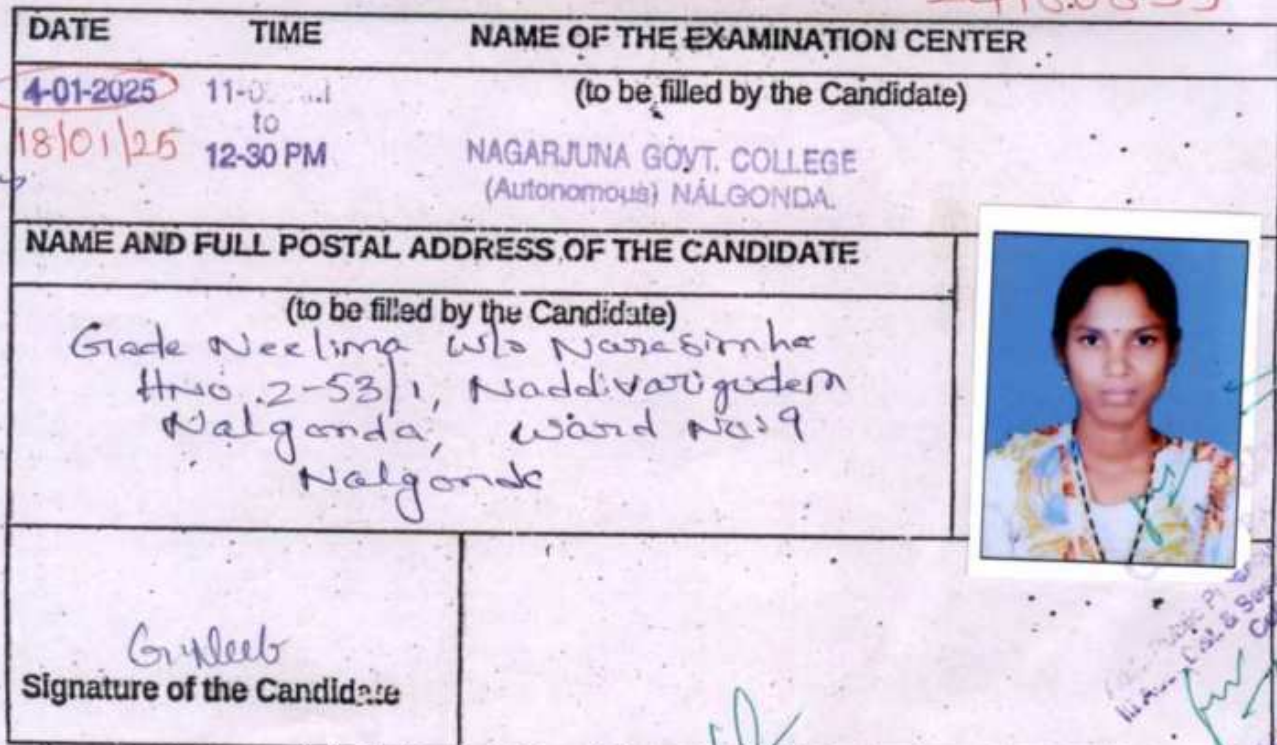 DATE TIME NAME OF THE EXAMINATION CENTER
4-01-2025 (to be filled by the Candidate)
to
18/01/25 12-30 PM NAGARJUNA GOVT. COLLEGE
(Autonomous) NALGONDA.
NAME AND FULL POSTAL ADDRESS OF THE CANDIDATE
(to be filled by the Candidate)
Gade Neelima W/o Narasimha
HNO. 2-53/1, Naddivarigudem
Nalgonda, Ward No:9
Nalgonda
Signature of the Candidate